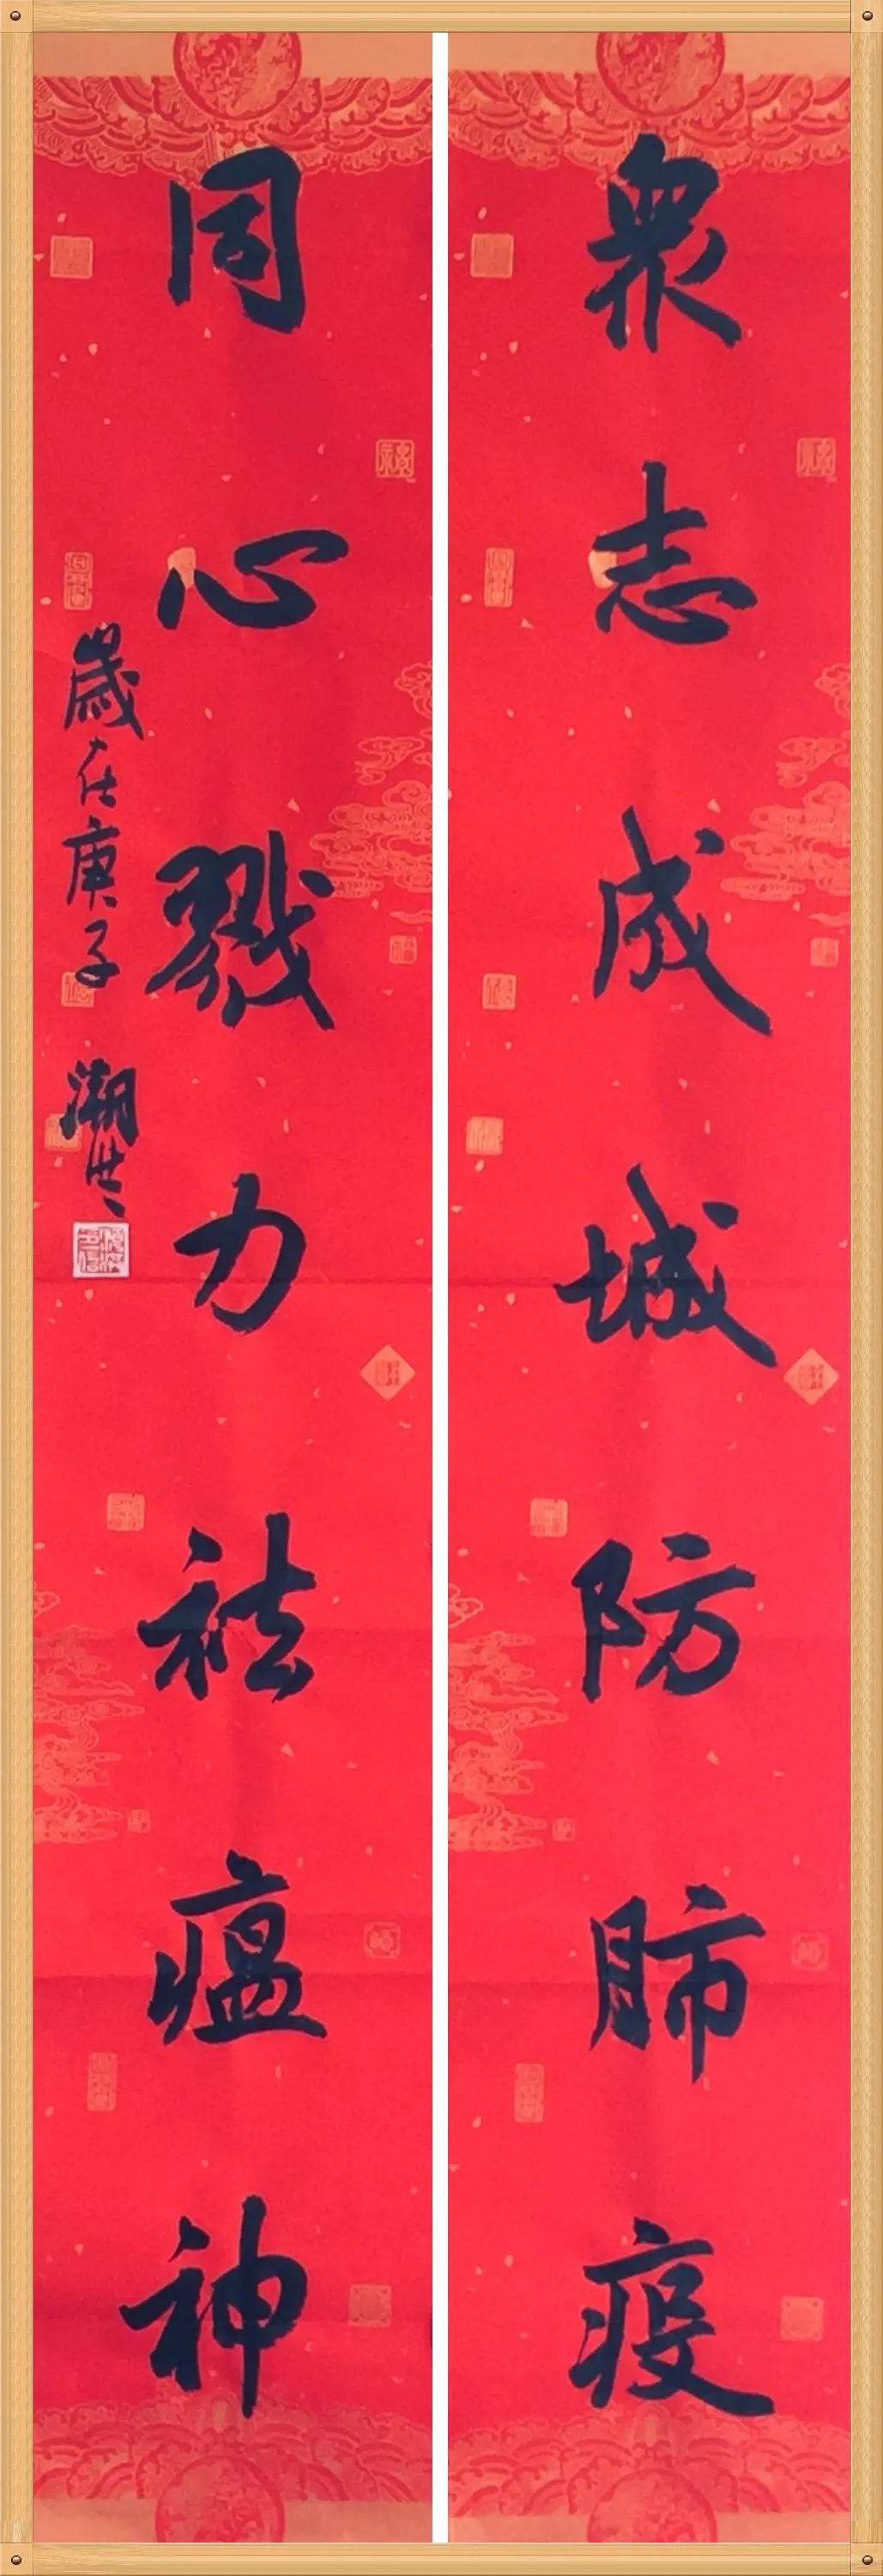 眾志成城防肺疫
同心戮力祛瘟神
歲在庚子